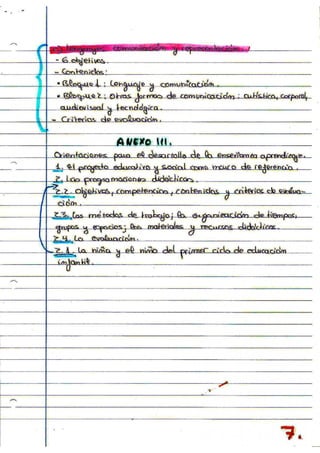 3. Lenguajes: comunicación y representación.
- 6 objetivos.
- Contenidos:
• Bloque 1: Lenguaje y comunicación.
• Bloque 2: Otras formas de comunicación: artística, corporal,
audiovisual y tecnológica.
- Criterios de evaluación.
ANEXO III.
Orientaciones para el desarrollo de la enseñanza aprendizaje.
1. El proyecto educativo y social como marco de referencia.
2. Las programaciones didácticas.
2.2. Objetivos, competencias, contenidos y criterios de evalua-
ción.
2.3. Los métodos de trabajo; la organización de tiempos,
grupos y espacios; los materiales y recursos didácticos.
2.4. La evaluación.
2.1. La niña y el niño del primer ciclo de educación
infantil.
7.